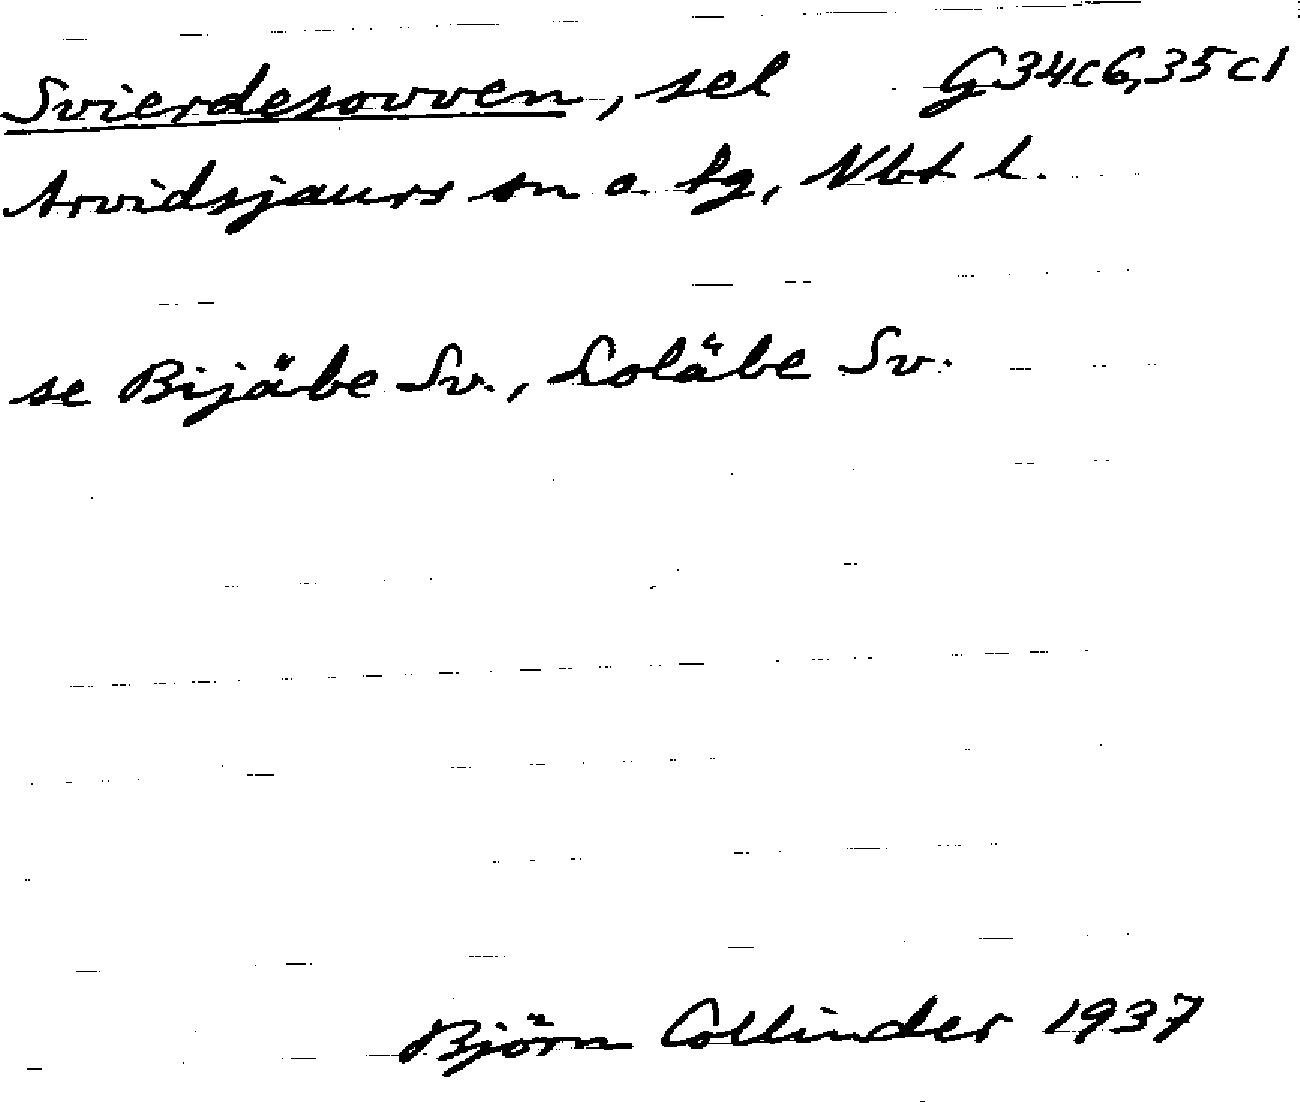 Svierdesovven, sel G34c6,35c1
Arvidsjaurs sn o. tg, Nbt l.
se Bijäbe Sv., Loläbe Sv.
Björn Collinder 1937